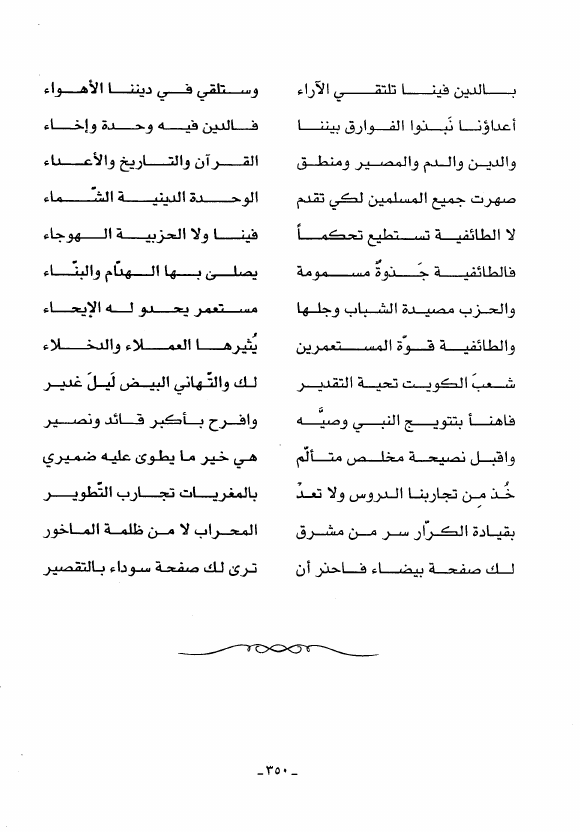 بالدين فينا تلتقي الآراء وستلقي في ديننا الأهواء
أعداؤنا نَبذوا الفوارق بيننا فالدين فيه وحدة وإخاء
والدين والدم والمصير ومنطق القرآن والتاريخ والأعداء
صهرت جميع المسلمين لكي تقدم الوحدة الدينية الشّماء
لا الطائفية تستطيع تحكماً فينا ولا الحزبية الهوجاء
فالطائفية جَذوةٌ مسمومة يصلى بها الهدّام والبنّاء
والحزب مصيدة الشباب وجلها مستعمر يحدو له الإيحاء
والطائفية قوّة المستعمرين يُثيرها العملاء والدخلاء
شعبَ الكويت تحية التقدير لك والتّهاني البيض لَيلَ غدير
فاهنأ بتتويج النبي وصيَّه وافرح بأكبر قائد ونصير
واقبل نصيحة مخلص متألّم هي خير ما يطوى عليه ضميري
خُذ مِن تجاربنا الدروس ولا تعدْ بالمغريات تجارب التّطوير
بقيادة الكرّار سر من مشرق المحراب لا من ظلمة الماخور
لك صفحة بيضاء فاحذر أن ترى لك صفحة سوداء بالتقصير
ـ ٣٥٠ ـ